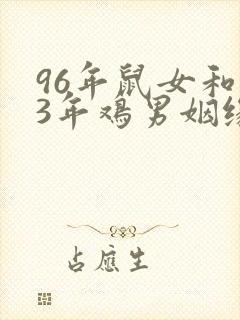 96年鼠女和
3年鸡男姻缘
占应生